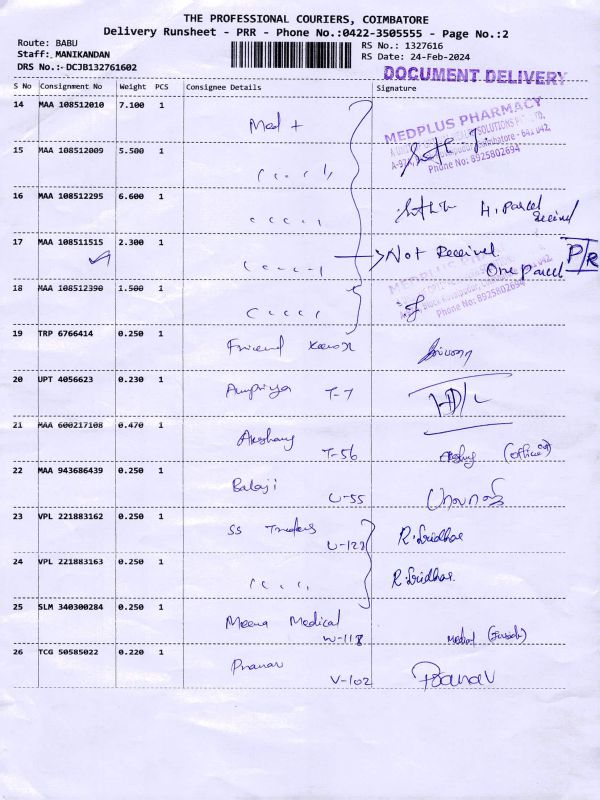 THE PROFESSIONAL COURIERS, COIMBATORE
Delivery Runsheet - PRR - Phone No.:0422-3505555 - Page No.:2
Route: BABU
RS No.: 1327616
Staff: MANIKANDAN
RS Date: 24-Feb-2024
DRS No.:-DCJB132761602
DOCUMENT DELIVERY
S No Consignment No Weight PCS Consignee Details Signature
14 MAA 108512010 7.100 1 Med +
MEDPLUS PHARMACY
Phone No: 8925802694
15 MAA 108512009 5.500 1 " " " "
16 MAA 108512295 6.600 1 " " " " 4. parcel
received
17 MAA 108511515 2.300 1 " " " " Not Received P/R
One parcel
18 MAA 108512390 1.500 1 " " " "
Phone No: 8925802694
19 TRP 6766414 0.250 1 Friend
20 UPT 4056623 0.230 1 T-7
21 MAA 600217108 0.470 1 T-56
22 MAA 943686439 0.250 1 Balaji U-55
23 VPL 221883162 0.250 1 SS Traders U-129 R. Sridhar
24 VPL 221883163 0.250 1 " " " " R. Sridhar.
25 SLM 340300284 0.250 1 Meena Medical W-118 Medical
26 TCG 50585022 0.220 1 Pranav V-102 Pranav